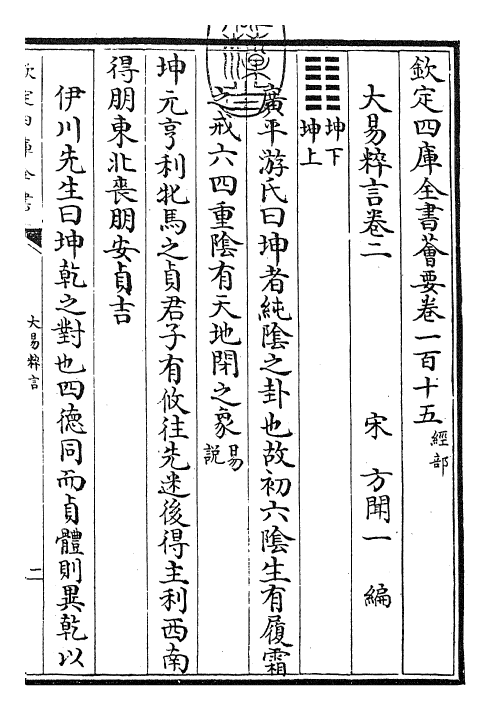 欽定四庫全書薈要卷一百十五 經部
大易粹言卷二
宋 方聞一 編
坤下
坤上
廣平游氏曰坤者純陰之卦也故初六陰生有履霜
之戒六四重陰有天地閉之象易說
坤元亨利牝馬之貞君子有攸往先迷後得主利西南
得朋東北喪朋安貞吉
伊川先生曰坤乾之對也四德同而貞體則異乾以
欽定四庫全書
大易粹言
二